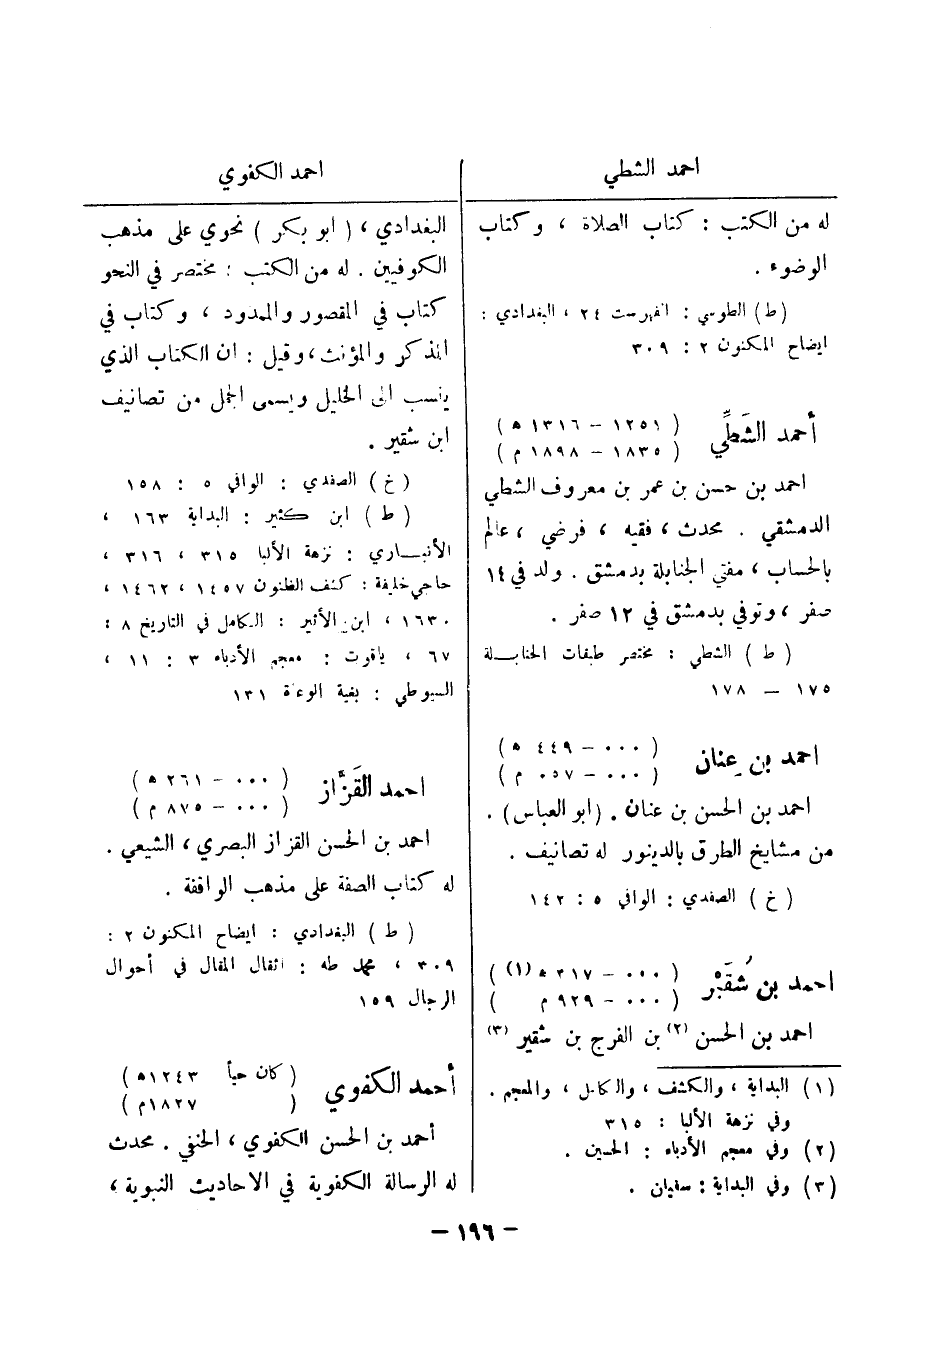 احمد الشطي
له من الكتب : كتاب الصلاة ، وكتاب
الوضوء .
( ط ) الطوسي : الفهرست ٢٤ ، البغدادي :
ايضاح المكنون ٢ : ٣٠٩
أحمد الشَطِّي ( ١٢٥١ – ١٣١٦ ه )
( ١٨٣٥ – ١٨٩٨ م )
احمد بن حسن بن عمر بن معروف الشطي
الدمشقي . محدث ، فقيه ، فرضي ، عالم
بالحساب ، مفتي الحنابلة بدمشق . ولد في ١٤
صفر ، وتوفي بدمشق في ١٢ صفر .
( ط ) الشطي : مختصر طبقات الحنابلة
١٧٥ – ١٧٨
احمد بن عنان ( ٠٠٠ – ٤٤٩ ه )
( ٠٠٠ – ٠٥٧ م )
احمد بن الحسن بن عنان . (ابو العباس) .
من مشايخ الطرق بالدينور له تصانيف .
( خ ) الصفدي : الوافي ٥ : ١٤٢
احمد بن شُقَيْر ( ٠٠٠ – ٣١٧ ه (١) )
( ٠٠٠ – ٩٢٩ م )
احمد بن الحسن (٢) بن الفرج بن شقير (٣)
(١) البداية ، والكشف ، والكامل ، والمعجم .
وفي نزهة الألبا : ٣١٥
(٢) وفي معجم الأدباء : الحسين .
(٣) وفي البداية : سفيان .
احمد الكفوي
البغدادي ، ( ابو بكر ) نحوي على مذهب
الكوفيين . له من الكتب : مختصر في النحو
كتاب في المقصور والممدود ، وكتاب في
المذكر والمؤنث ، وقيل : ان الكتاب الذي
ينسب الى الخليل ويسمى الجمل من تصانيف
ابن شقير .
( خ ) الصفدي : الوافي ٥ : ١٥٨
( ط ) ابن كثير : البداية ١٦٣ ،
الأنبـاري : نزهة الألبا ٣١٥ ، ٣١٦ ،
حاجي خليفة : كشف الظنون ١٤٥٧ ، ١٤٦٢ ،
١٦٣٠ ، ابن الأثير : الكامل في التاريخ ٨ :
٦٧ ، ياقوت : معجم الأدباء ٣ : ١١ ،
السيوطي : بغية الوعاة ١٣١
احمد القَزَّاز ( ٠٠٠ – ٢٦١ ه )
( ٠٠٠ – ٨٧٥ م )
احمد بن الحسن القزاز البصري ، الشيعي .
له كتاب الصفة على مذهب الواقفة .
( ط ) البغدادي : ايضاح المكنون ٢ :
٣٠٩ ، محمد طه : اتقان المقال في أحوال
الرجال ١٥٩
أحمد الكفوي ( كان حياً ١٢٤٣ه )
( ١٨٢٧م )
أحمد بن الحسن الكفوي ، الحنفي . محدث
له الرسالة الكفوية في الاحاديث النبوية ،
– ١٩٦ –